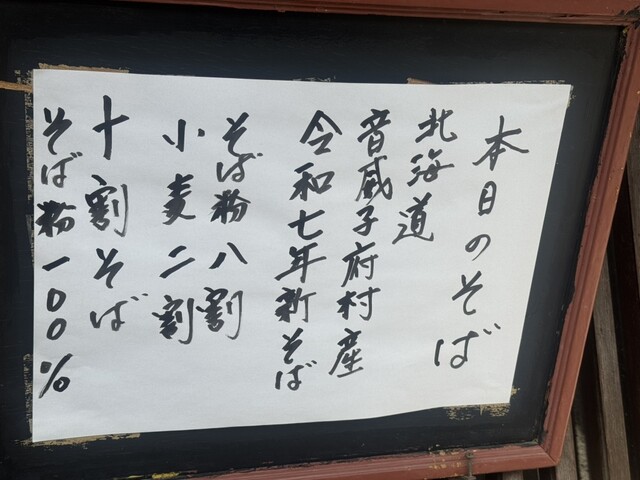 本日のそば
北海道
音威子府村産
令和七年新そば
そば粉八割
小麦二割
十割そば
そば粉一００％